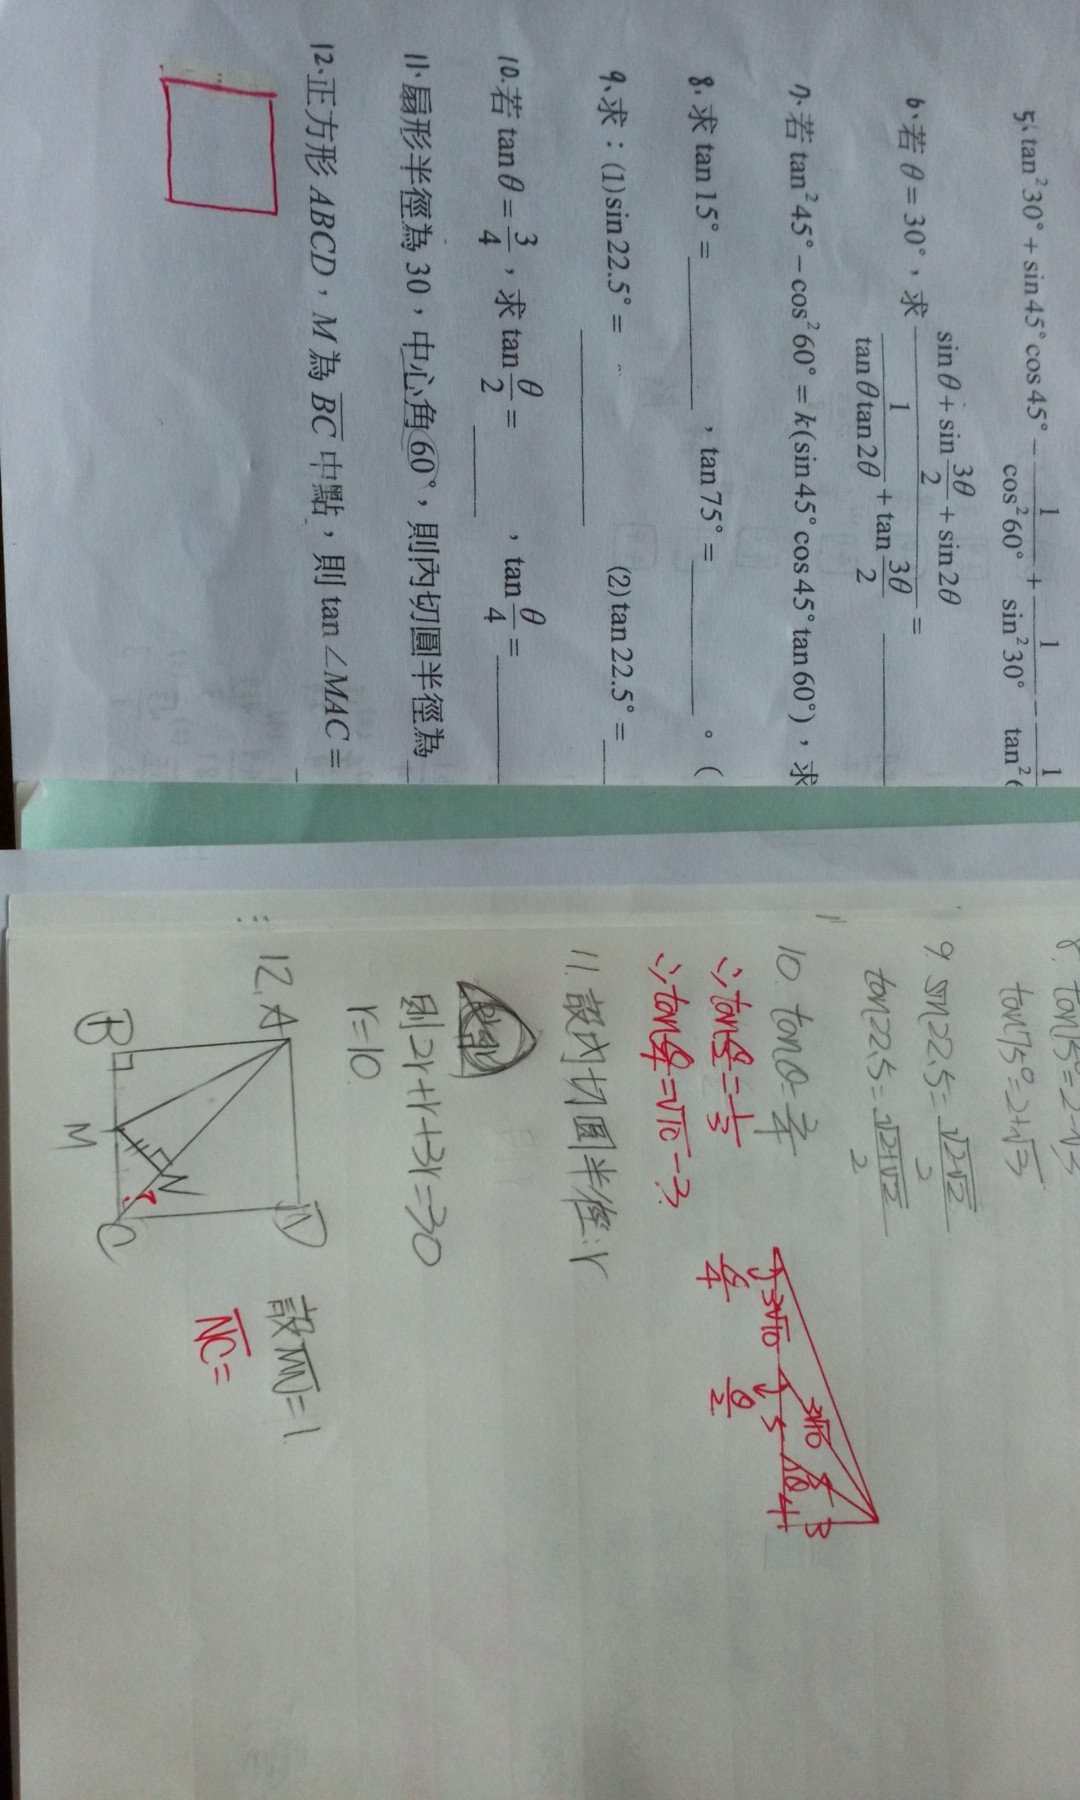 5、tan²30° + sin 45° cos 45° − 1/cos²60° + 1/sin²30° − 1/tan²6
6、若 θ = 30°，求 (sin θ + sin 3θ/2 + sin 2θ)/(1/(tan θ tan 2θ) + tan 3θ/2) = ______
7、若 tan²45° − cos²60° = k(sin 45° cos 45° tan 60°)，求
8、求 tan 15° = ______，tan 75° = ______。(
9、求：(1) sin 22.5° = ______ (2) tan 22.5° = ___
10.若 tan θ = 3/4，求 tan θ/2 = ______，tan θ/4 = ______
11、扇形半徑為 30，中心角 60°，則內切圓半徑為
12、正方形 ABCD，M 為 BC 中點，則 tan ∠MAC =
8. tan15°=2-√3
tan75°=2+√3
9. sin22.5=√(2-√2)/2
tan22.5=√(2+√2)/2
10. tanθ=3/4
∴tan θ/2=1/3
∴tan θ/4=√10-3
3√10 3√10 5 5 θ 4 3
θ/4 θ/2
11. 設內切圓半徑:r
則2r+r+3r=30
r=10
12. A D
B M C N
設MN=1
NC=